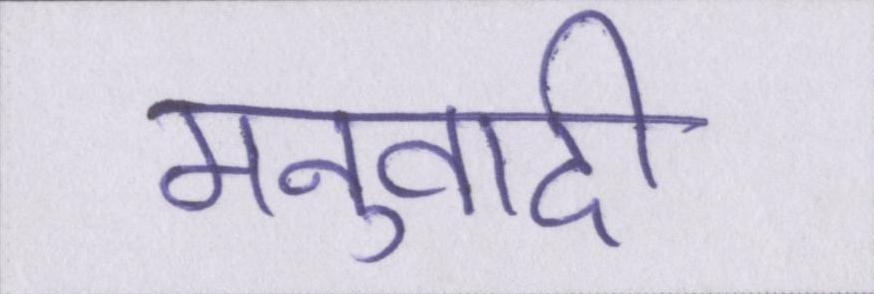 मनुवादी